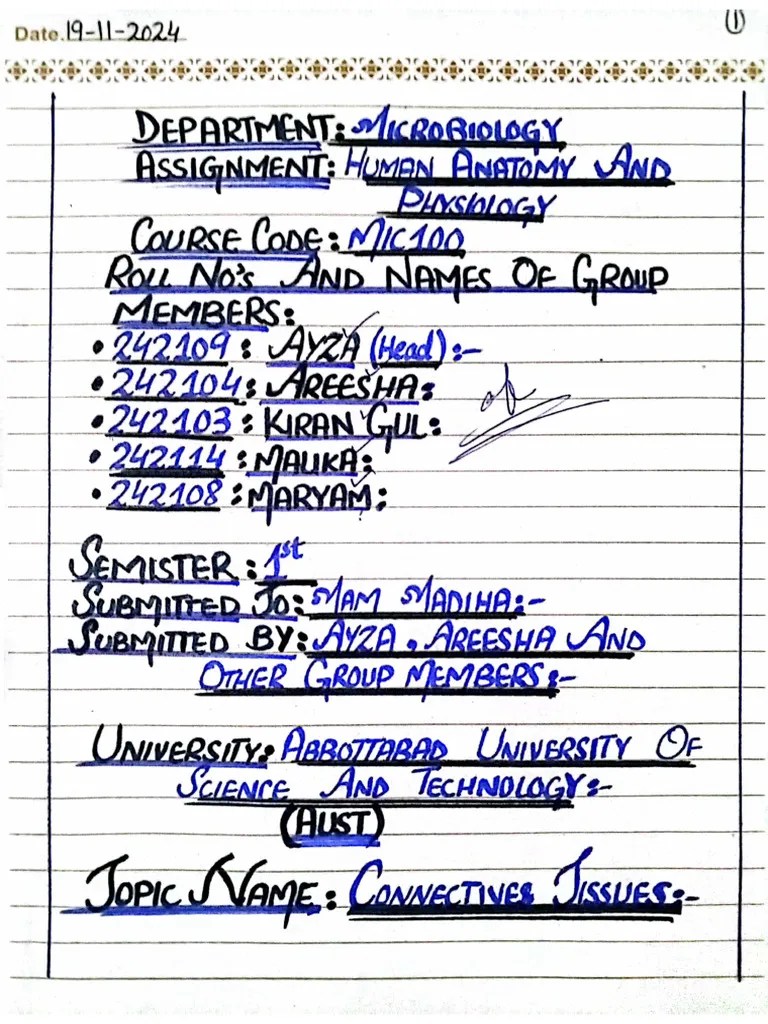 Date. 19-11-2024
(1)
DEPARTMENT: MICROBIOLOGY
ASSIGNMENT: HUMAN ANATOMY AND
PHYSIOLOGY
COURSE CODE: MIC100
ROLL NO'S AND NAMES OF GROUP
MEMBERS:
• 242109: AYZA (Head):-
• 242104: AREESHA:
• 242103: KIRAN GUL:
• 242114: MALIKA:
• 242108: MARYAM:
SEMISTER: 1st
SUBMITTED TO: MAM MADIHA:-
SUBMITTED BY: AYZA, AREESHA AND
OTHER GROUP MEMBERS:-
UNIVERSITY: ABBOTTABAD UNIVERSITY OF
SCIENCE AND TECHNOLOGY:-
(AUST)
TOPIC NAME: CONNECTIVES TISSUES:-